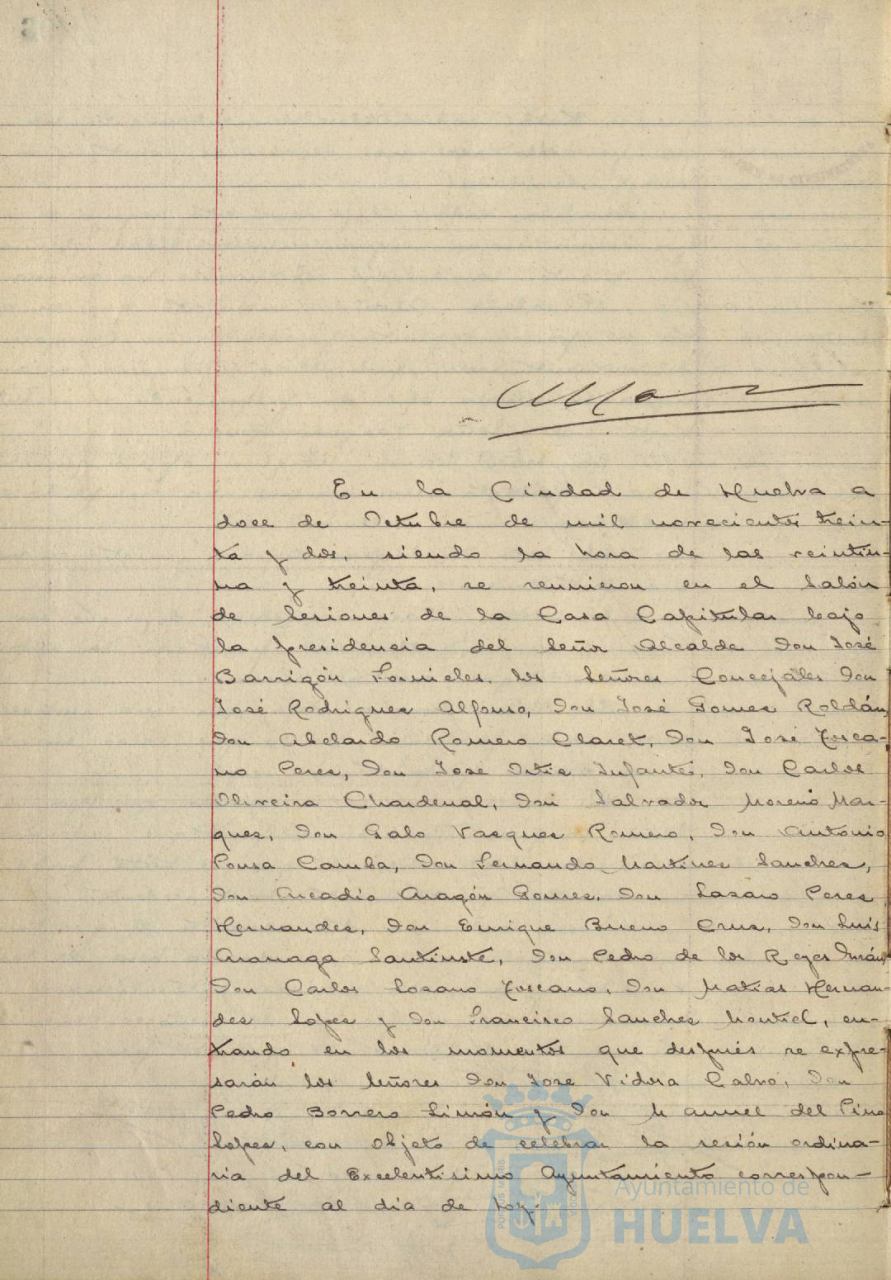 En la Ciudad de Huelva a
doce de Octubre de mil novecientos trein-
ta y dos, siendo la hora de las veintiu-
na y treinta, se reunieron en el Salón
de Sesiones de la Casa Capitular bajo
la presidencia del Señor Alcalde Don José
Barrigón Fornieles, los Señores Concejales Don
José Rodrigues Alfonso, Don José Gomes Roldán,
Don Abelardo Romero Claret, Don José Tosca-
no Peres, Don Jose Ortis Infantes, Don Carlos
Oliveira Chardenal, Don Salvador Moreno Mar-
ques, Don Galo Vasques Romero, Don Antonio
Ponsa Camba, Don Fernando Martines Sanches,
Don Arcadio Aragón Gomes, Don Lasaro Peres
Hernandes, Don Enrique Bueno Crus, Don Luis
Aramaga Santiuste, Don Pedro de los Reyes Durán,
Don Carlos Losano Toscano, Don Matias Hernan-
des Lopes y Don Francisco Sanches Montiel, en-
trando en los momentos que después se expre-
sarán los Señores Don Jose Vidosa Calvo, Don
Pedro Borrero Limón y Don Manuel del Pino
Lopes, con objeto de celebrar la sesión ordina-
ria del Excelentisimo Ayuntamiento correspon-
diente al dia de hoy.
Ayuntamiento de
HUELVA